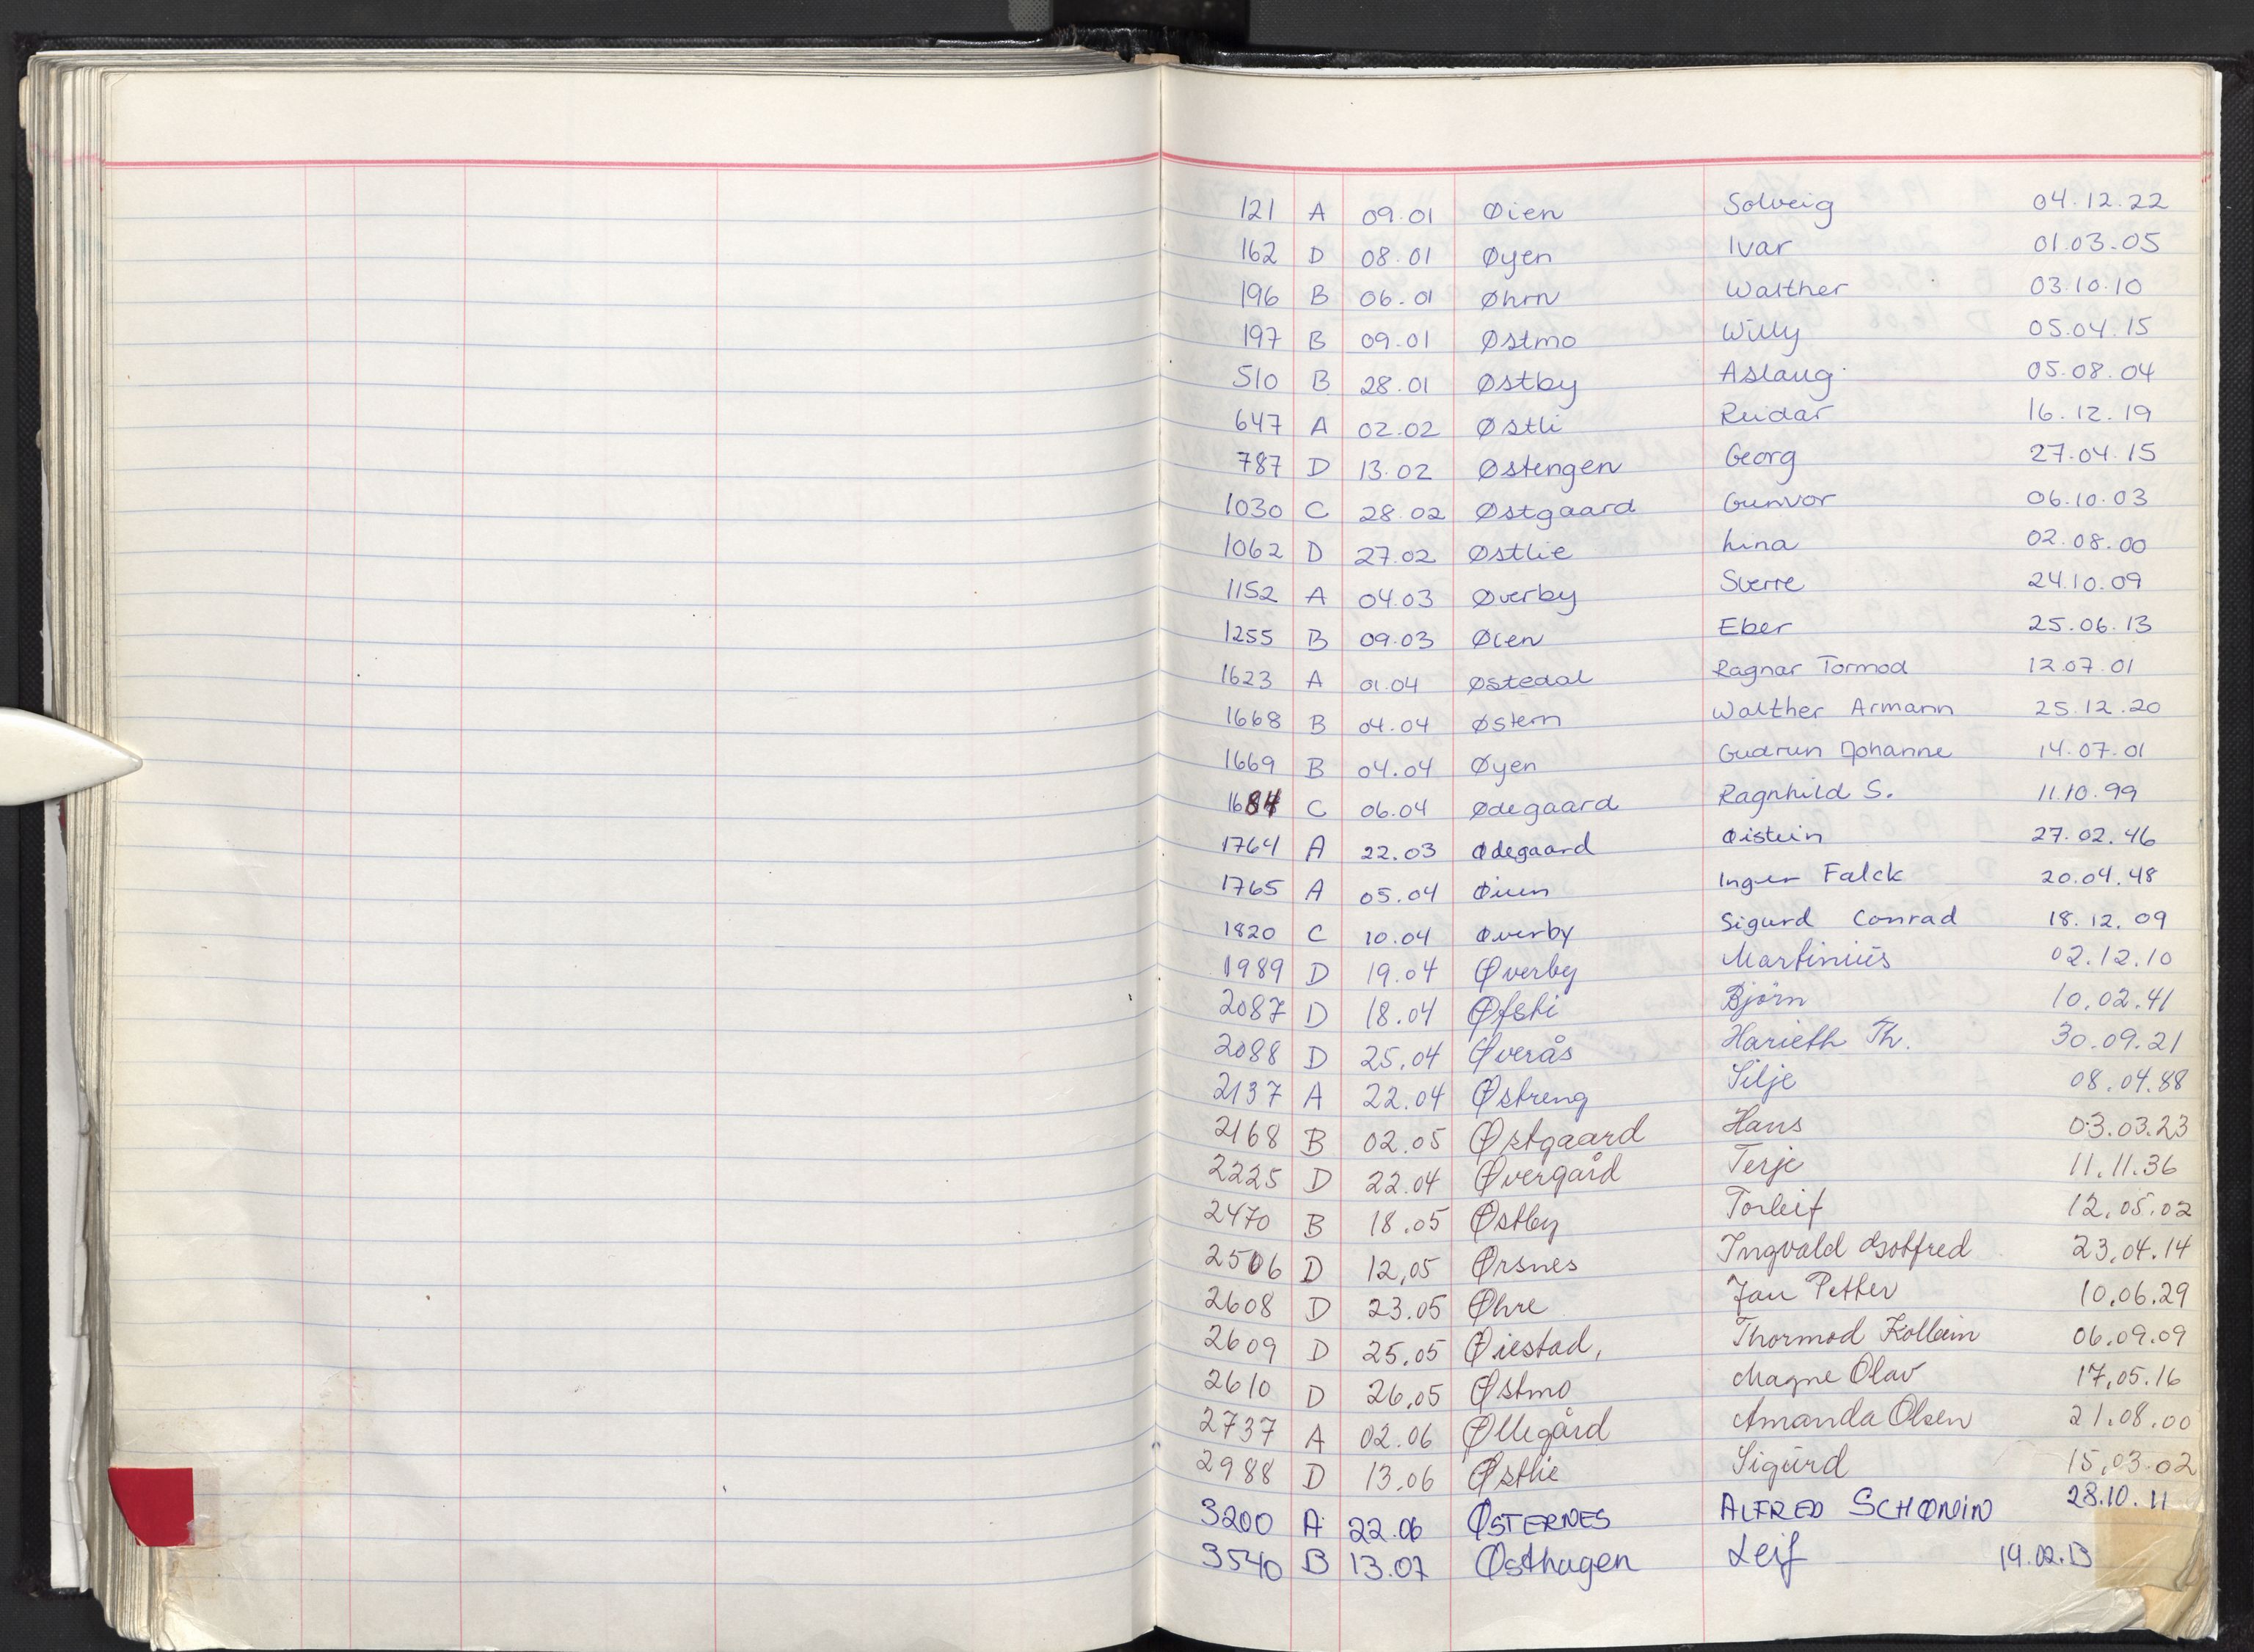 121 A 09.01 Øien Solveig 04.12.22
162 D 08.01 Øyen Ivar 01.03.05
196 B 06.01 Øhrn Walther 03.10.10
197 B 09.01 Østmo Willy 05.04.15
510 B 28.01 Østby Aslaug 05.08.04
647 A 02.02 Østli Reidar 16.12.19
787 D 13.02 Østengen Georg 27.04.15
1030 C 28.02 Østgaard Gunvor 06.10.03
1062 D 27.02 Østlie Lina 02.08.00
1152 A 04.03 Øverby Sverre 24.10.09
1255 B 09.03 Øien Eber 25.06.13
1623 A 01.04 Østedal Ragnar Tormod 12.07.01
1668 B 04.04 Østern Walther Armann 25.12.20
1669 B 04.04 Øyen Gudrun Johanne 14.07.01
1684 C 06.04 Ødegaard Ragnhild S. 11.10.99
1764 A 22.03 Ødegaard Øistein 27.02.46
1765 A 05.04 Øien Inger Falck 20.04.48
1820 C 10.04 Øverby Sigurd Conrad 18.12.09
1989 D 19.04 Øverby Martinius 02.12.10
2087 D 18.04 Øfsti Bjørn 10.02.41
2088 D 25.04 Øverås Harieth Th. 30.09.21
2137 A 22.04 Østreng Silje 08.04.88
2168 B 02.05 Østgaard Hans 03.03.23
2225 D 22.04 Øvergård Terje 11.11.36
2470 B 18.05 Østby Torleif 12.05.02
2506 D 12.05 Ørsnes Ingvald Gotfred 23.04.14
2608 D 23.05 Øhre Jan Petter 10.06.29
2609 D 25.05 Øiestad, Thormod 06.09.09
2610 D 26.05 Østmo Magne Olav 17.05.16
2737 A 02.06 Øllegård Amanda Olsen 21.08.00
2988 D 13.06 Østlie Sigurd 15.03.02
3200 A 22.06 ØSTERNES ALFRED SCHØNIN 28.10.11
3540 B 13.07 Østhagen Leif 19.02.13